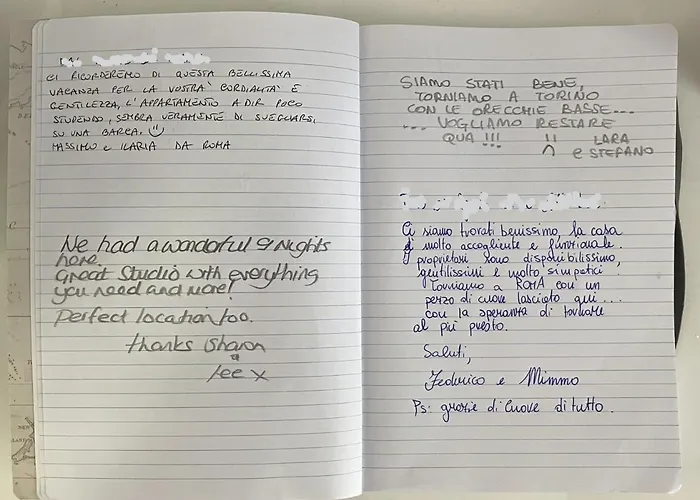 CI RICORDEREMO DI QUESTA BELLISSIMA
VACANZA PER LA VOSTRA CORDIALITA' E
GENTILEZZA, L'APPARTAMENTO A DIR POCO
STUPENDO, SEMBRA VERAMENTE DI SVEGLIARSI
SU UNA BARCA.
MASSIMO e ILARIA DA ROMA
We had a wonderful 9 Nights
here.
Great Studio with everything
you need and more!
Perfect location too.
thanks Sharon
&
Lee x
SIAMO STATI BENE,
TORNIAMO A TORINO
CON LE ORECCHIE BASSE...
... VOGLIAMO RESTARE
QUA !!!
LARA
e STEFANO
Ci siamo trovati benissimo, la casa
è molto accogliente e funzionale.
I proprietari sono disponibilissimi,
gentilissimi e molto simpatici.
Torniamo a ROMA con un
pezzo di cuore lasciato qui...
con la speranza di tornare
al più presto.
Saluti,
Federico e Mimmo
Ps: grazie di cuore di tutto.